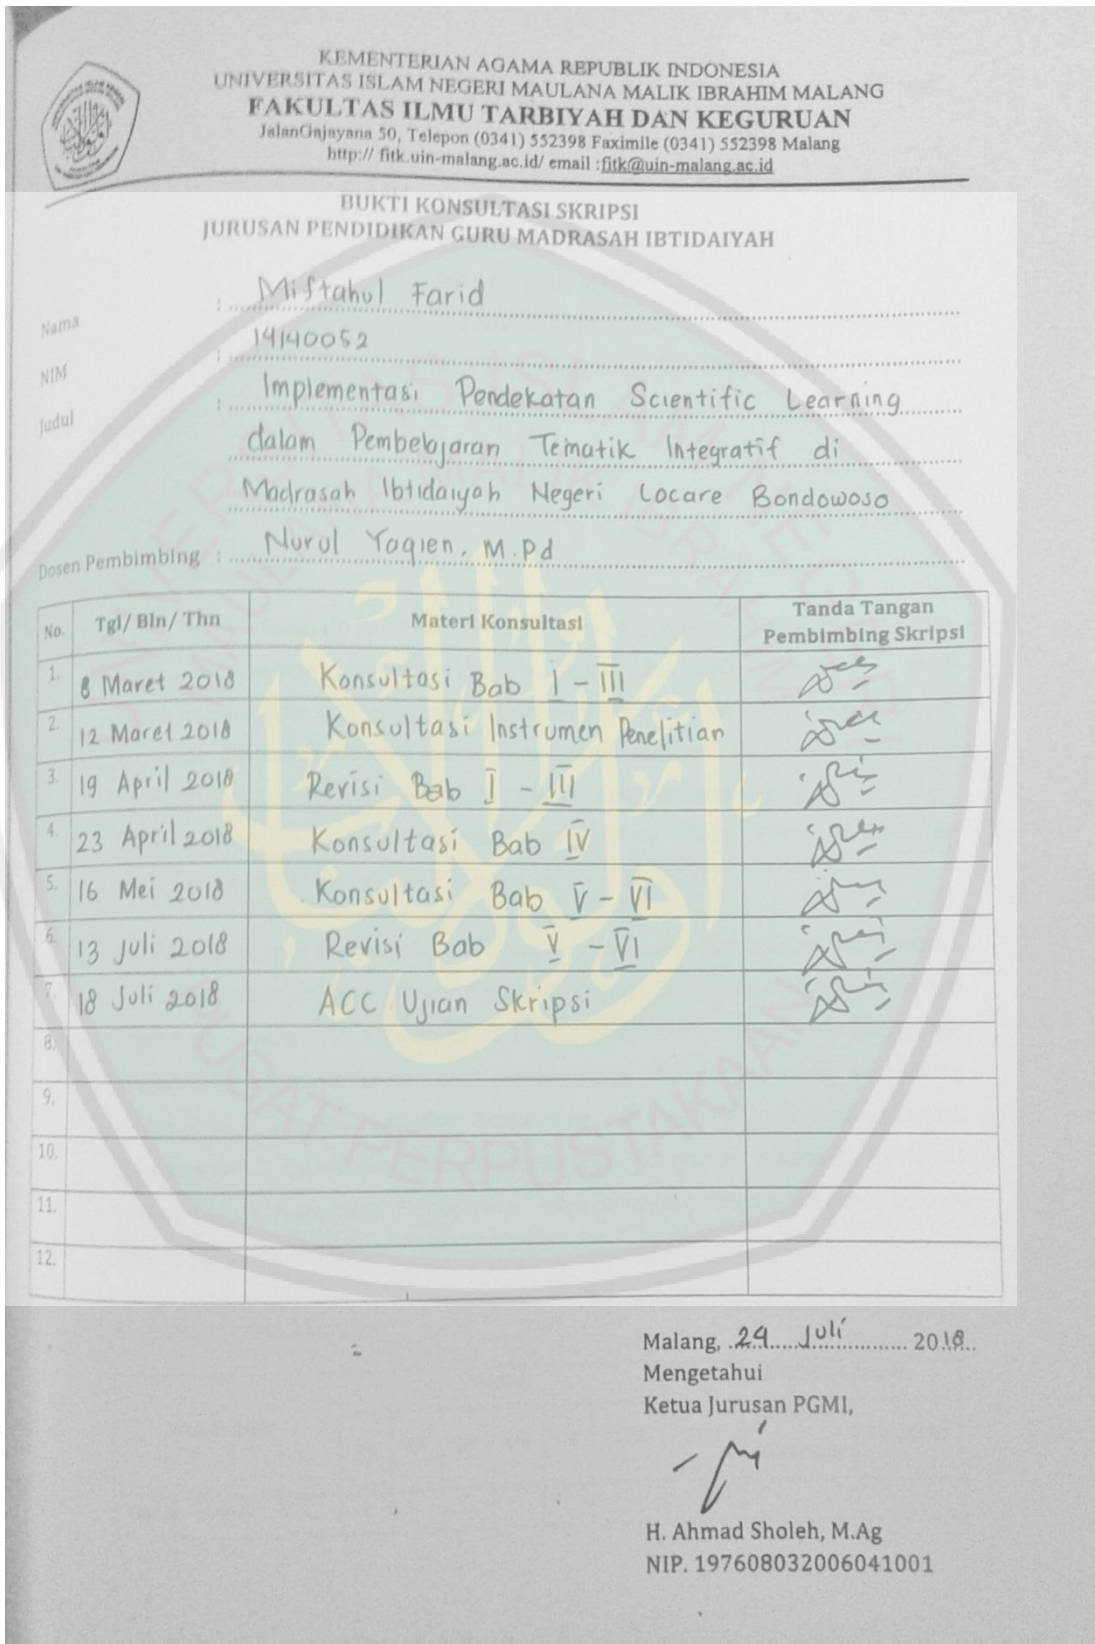 KEMENTERIAN AGAMA REPUBLIK INDONESIA
UNIVERSITAS ISLAM NEGERI MAULANA MALIK IBRAHIM MALANG
FAKULTAS ILMU TARBIYAH DAN KEGURUAN
JalanGajayana 50, Telepon (0341) 552398 Faximile (0341) 552398 Malang
http:// fitk.uin-malang.ac.id/ email :fitk@uin-malang.ac.id
BUKTI KONSULTASI SKRIPSI
JURUSAN PENDIDIKAN GURU MADRASAH IBTIDAIYAH
Nama : Miftahul Farid
NIM : 14140052
Judul : Implementasi Pendekatan Scientific Learning
dalam Pembelajaran Tematik Integratif di
Madrasah Ibtidaiyah Negeri Locare Bondowoso
Dosen Pembimbing : Nurul Yaqien, M.Pd
No. Tgl/ Bln/ Thn Materi Konsultasi Tanda Tangan
Pembimbing Skripsi
1. 8 Maret 2018 Konsultasi Bab I - III
2. 12 Maret 2018 Konsultasi Instrumen Penelitian
3. 19 April 2018 Revisi Bab I - III
4. 23 April 2018 Konsultasi Bab IV
5. 16 Mei 2018 Konsultasi Bab V - VI
6. 13 Juli 2018 Revisi Bab V - VI
7. 18 Juli 2018 ACC Ujian Skripsi
8.
9.
10.
11.
12.
PUSAT PERPUSTAKAAN
Malang, 24 Juli 2018
Mengetahui
Ketua Jurusan PGMI,
H. Ahmad Sholeh, M.Ag
NIP. 197608032006041001